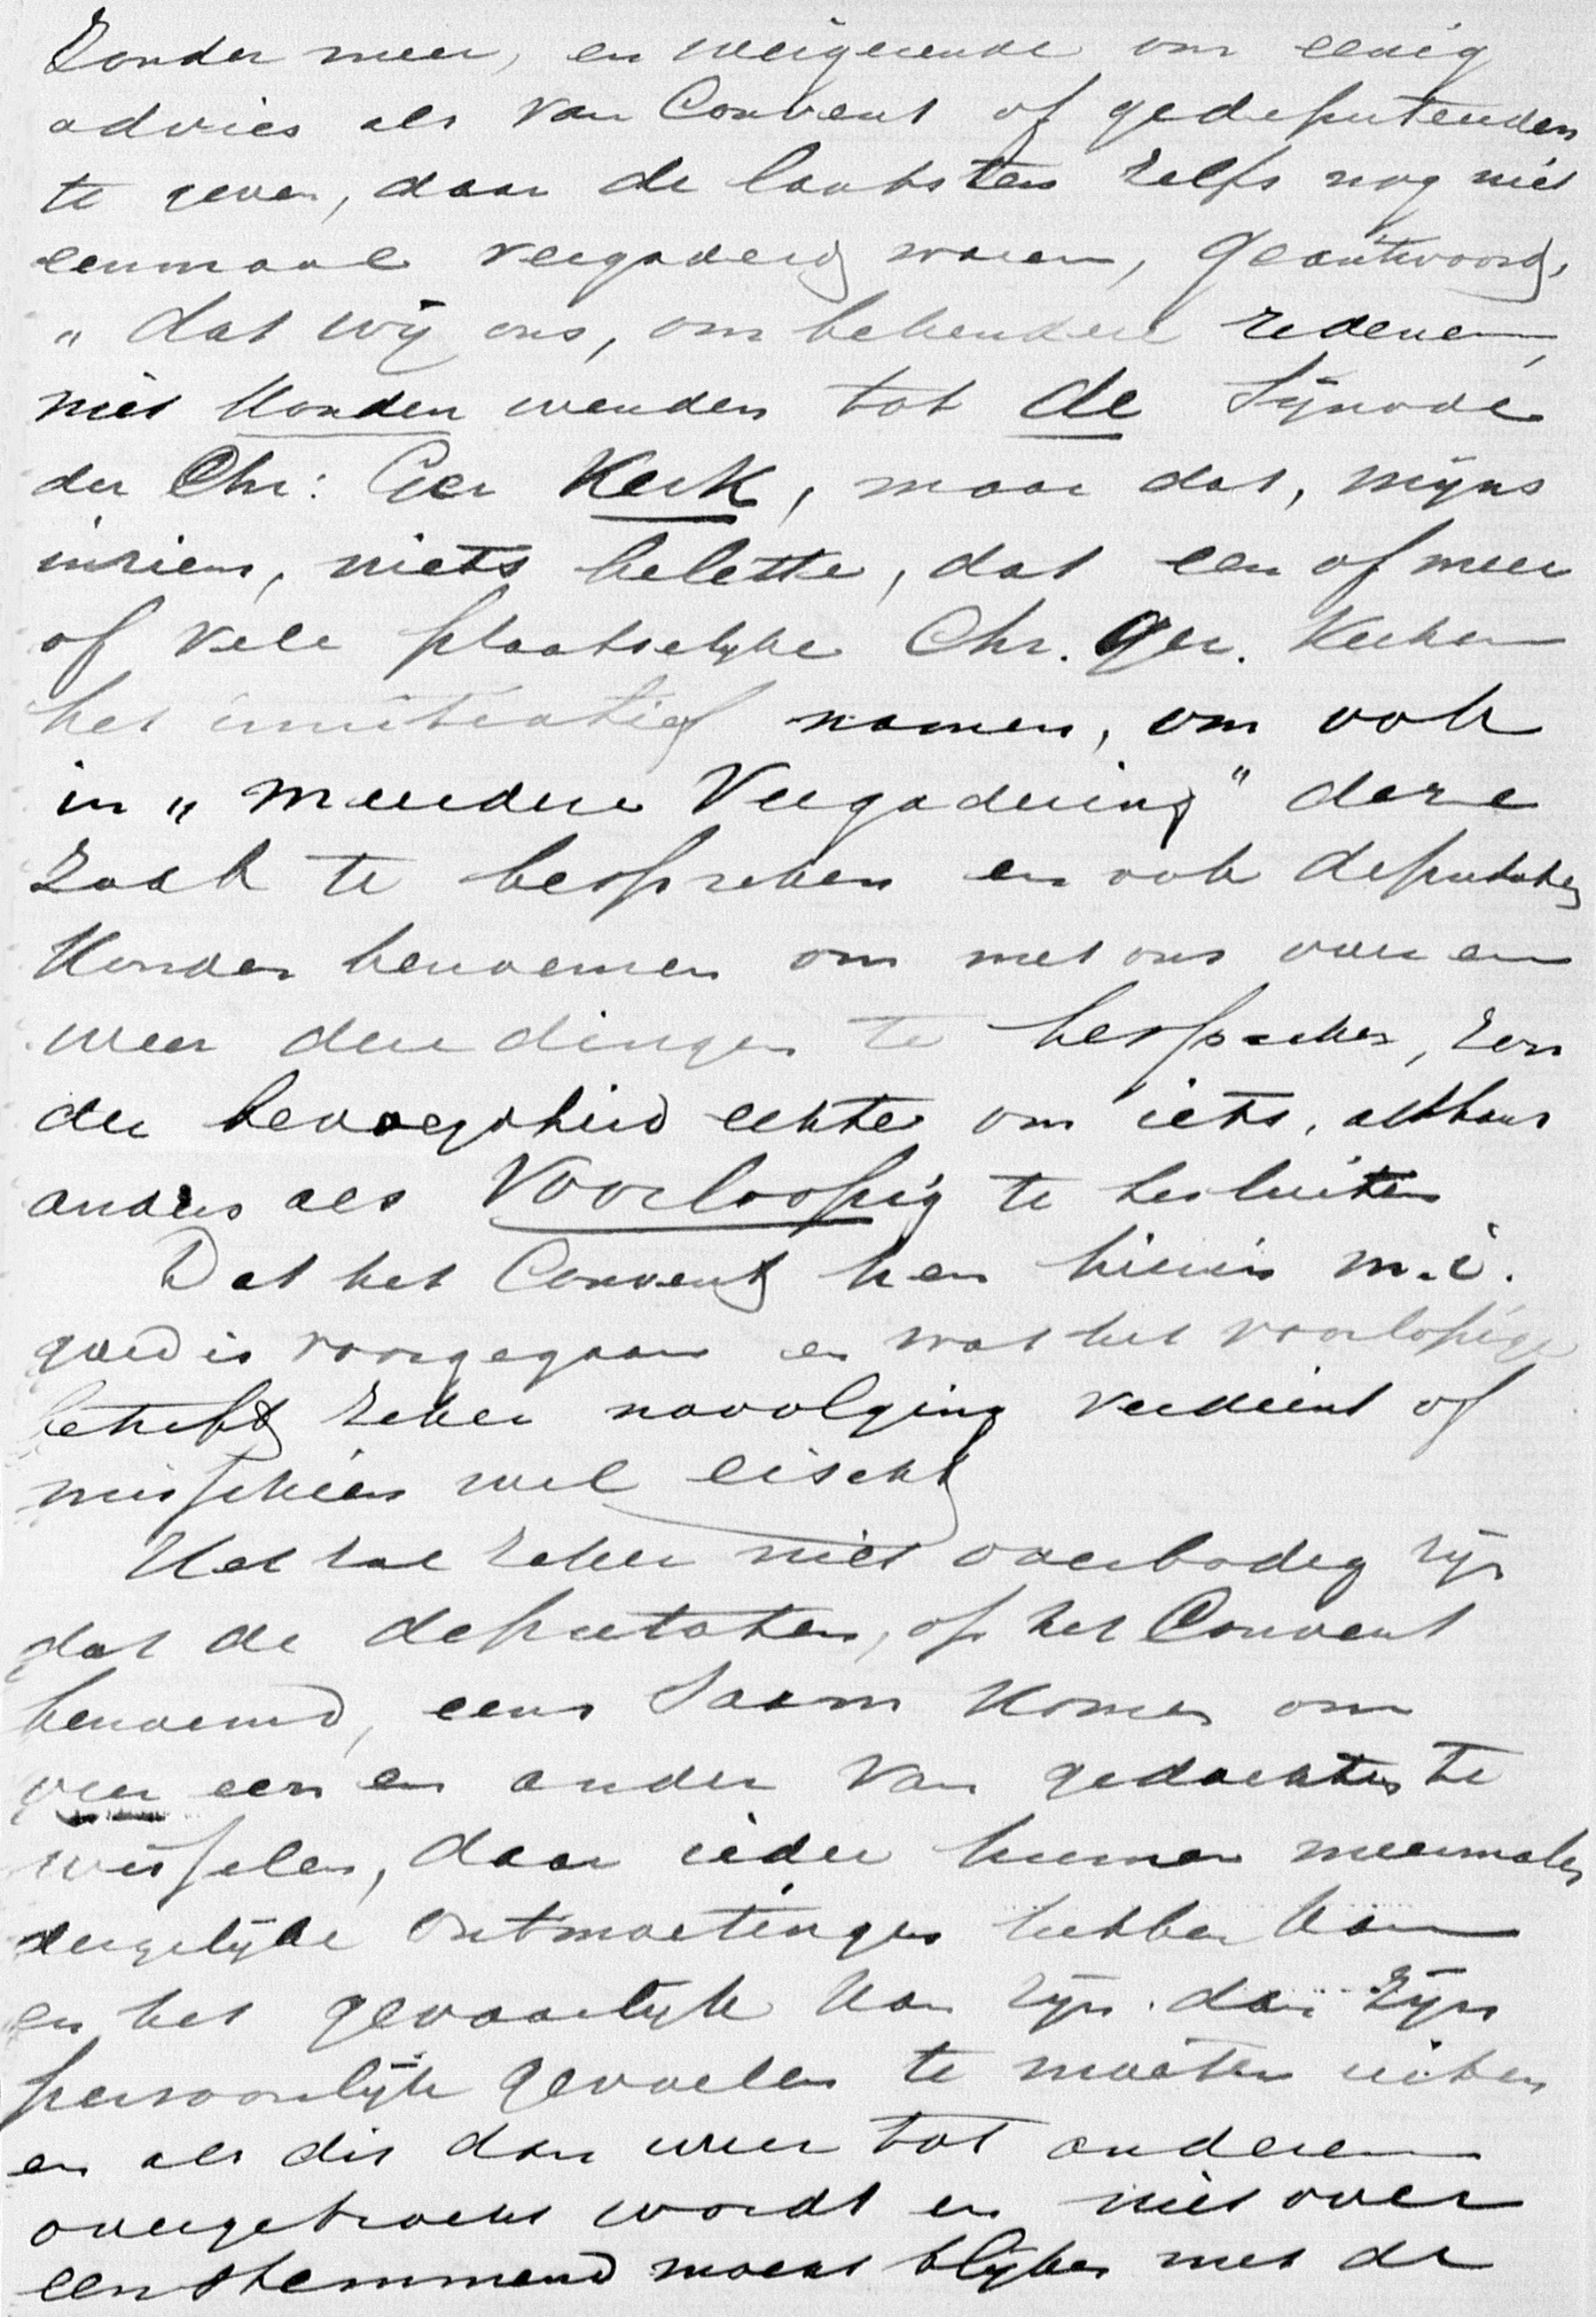 Zonder meer, en weigerende om eenig
advies als van Convent of gedeputeerden
te geven, daar de laatsten zelfs nog niet
eenmaal vergaderd waren, geantwoord,
„ dat wij ons, om bekende redenen,
niet konden wenden tot de Synode
der Chr: Ger Kerk, maar dat, mijns
inziens, niets belette, dat een of meer
of vele plaatselijke Chr. Ger. Kerken
het innitiatief namen, om ook
in „ meerdere Vergadering" deze
zaak te bespreken en ook deputaten
konden benoemen om met ons over en
weer deze dingen te bespreken, zon
der bevoegdheid echter om iets, althans
anders als Voorloopig te besluiten
Dat het Convent hen hierin m.i.
goed is voorgegaan en wat het voorlopige
betreft zeker navolging verdient of
misschien wel eischt
Het zal zeker niet overbodig zijn
dat de deputaten, op het Convent
benoemd, eens saam komen om
over een en ander van gedachten te
wisselen, daar ieder hunner meermalen
dergelijke ontmoetingen hebben kan
en het gevaarlijk kan zijn dan zijn
persoonlijk gevoelen te moeten uiten
en als dit dan weer tot anderen
overgebracht wordt en niet over
eenstemmend mocht blijken met de